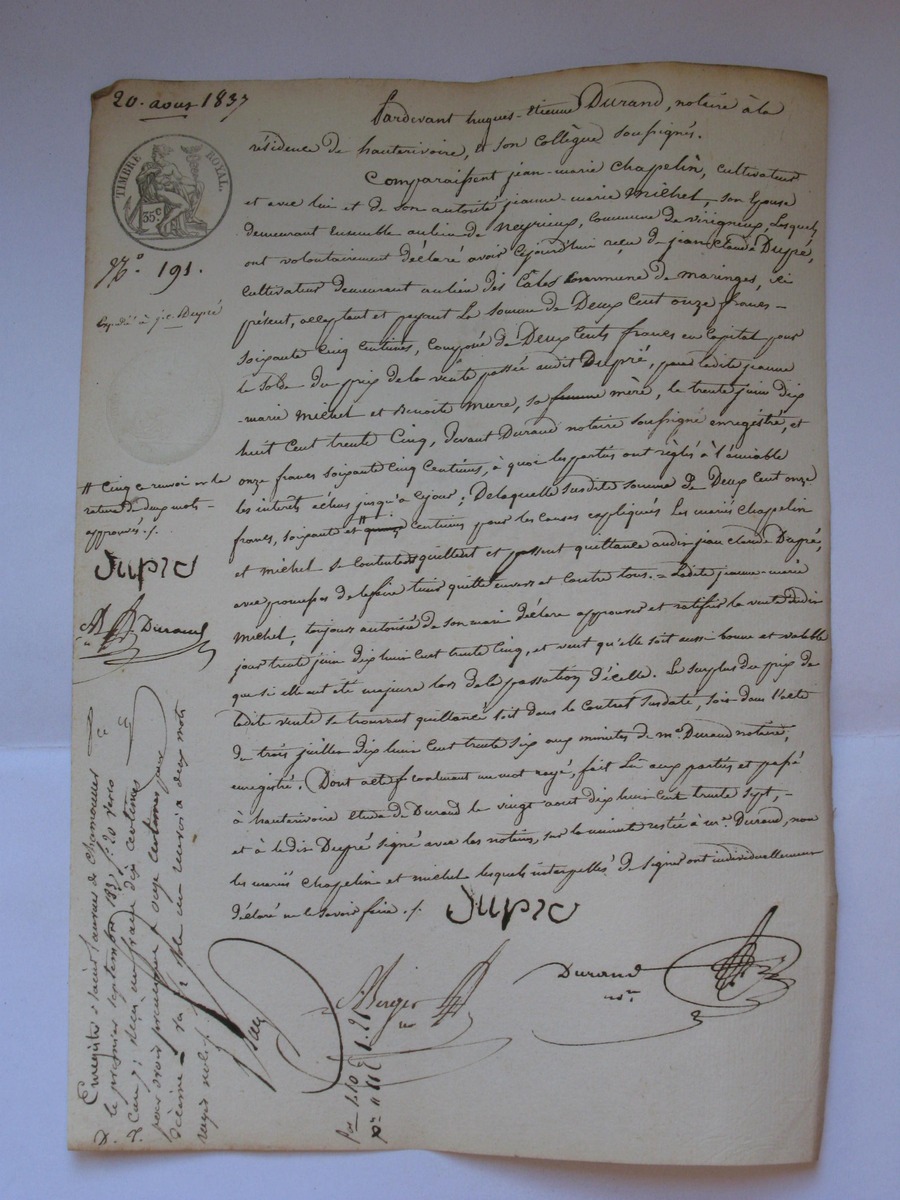 20. aous 1837
TIMBRE ROYAL.
35 c
N.° 191.
Expédié à J. C. Dupré
Pardevant hugues-Etienne Durand, notaire à la
résidence de hauterivoire, & son Collègue soussignés.
Comparaissent jean-marie Chapelin, cultivateur
et avec lui et de son autorité jeanne-marie Michel, son Epouse
demeurant Ensemble au lieu de Neyrieux, Commune de virigneux, Lesquels
ont volontairement déclaré avoir Cejourd'hui reçu de jean Claude Dupré,
Cultivateur demeurant au lieu des Côtes Commune de maringes, ici
présent, acceptant et payant La somme de Deux Cent onze francs-
soixante Cinq Centimes, Composé de Deux Cents francs en Capital pour
le solde du prix de la vente passée audit Dupré, par ladite jeanne
-marie Michel et Benoite Mure, sa femme mère, le trente juin dix
huit Cent trente Cinq, devant Durand notaire soussigné enregistré, et
onze francs soixante Cinq Centimes, à quoi les parties ont règlés à l'amiable
les interets échus jusqu'à Cejour; De laquelle susdite somme de Deux Cent onze
francs, soixante et # quinze Centimes pour les Causes expliquées Les mariés Chappelin
et michel se contentent quittent et passent quittance audit jean Claude Dupré,
avec promesse de le faire tenir quitte envers et Contre tous. = Ladite jeanne-marie
Michel, toujours autorisée de son mari déclare approuver et ratifier la vente dudit
jour trente juin dix huit Cent trente Cinq, et veut qu'elle soit aussi bonne et valable
que si elle eut été majeure lors de la passation d'icelle. Le surplus du prix de
ladite vente se trouvant quittancé soit dans le Contrat susdaté, soit dans l'acte
du trois juillet dix huit Cent trente six aux minutes de me. Durand notaire,
enregistré. Dont acte contenant un mot rayé, fait Lû aux parties et passé
à hauterivoire Etude de Durand le vingt aout dix huit Cent trente sept, -
et à ledit Dupré signé avec les notaires, sur la minute restée à me. Durand, non
les mariés Chapelin et michel lesquels interpellés de signer ont individuellement
déclaré ne le savoir faire ./.
# Cinq ce renvoi et la
rature de deux mots
approuvés ./.
Dupré
Durand
Dupré
Berger
Durand
Enregistré à Saint Laurent de Chamousset
le premier septembre 1837, f.° 20 verso
C. 7; reçu un franc dix centimes